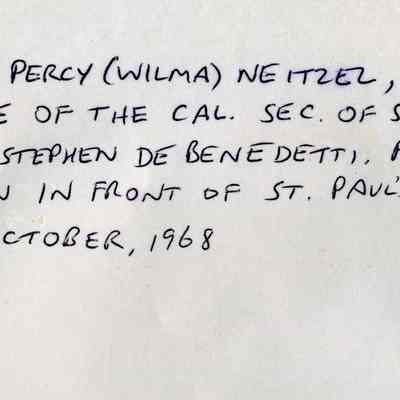 PERCY (WILMA) NEITZEL,
E OF THE CAL. SEC. OF S
STEPHEN DE BENEDETTI. P
N IN FRONT OF ST. PAUL'S
CTOBER, 1968